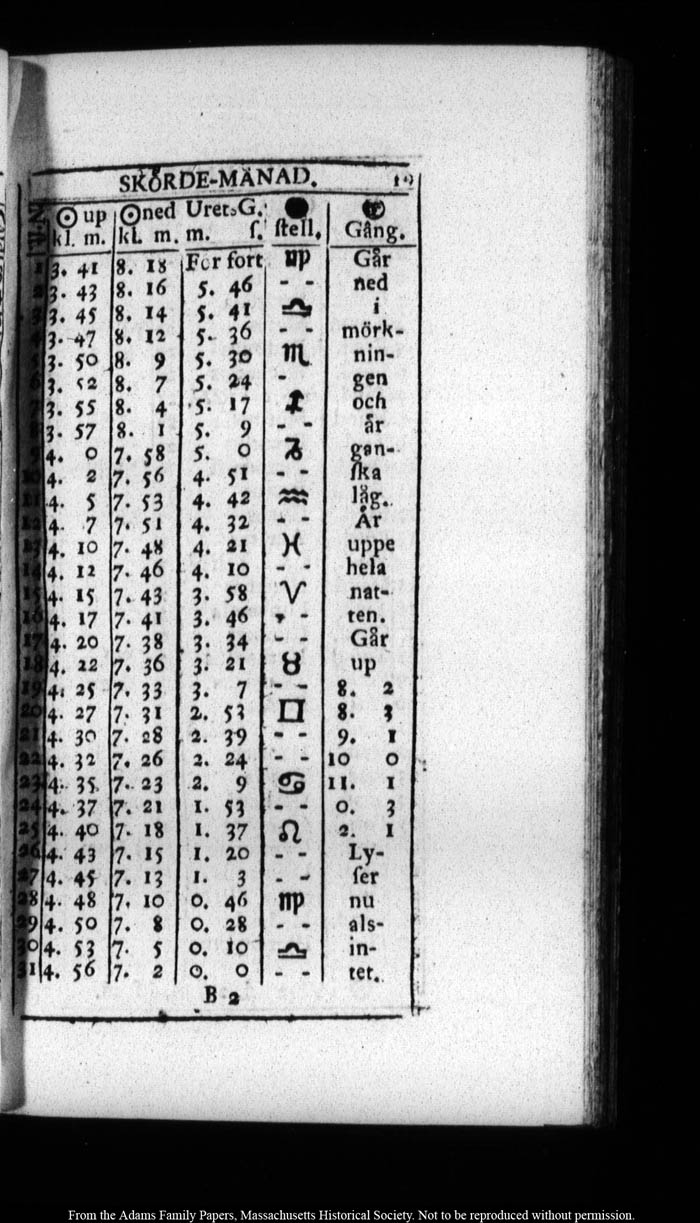 SKÖRDE-MÅNAD.
☉ up ☉ned Uret.G. ſtell. Gång.
kl. m. kl. m. m. ſ.
1 3. 41 8. 18 For fort ♍ Går
2 3. 43 8. 16 5. 46 - - ned
3 3. 45 8. 14 5. 41 ♎ i
4 3. 47 8. 12 5. 36 - - mörk-
5 3. 50 8. 9 5. 30 ♏ nin-
6 3. 52 8. 7 5. 24 - gen
7 3. 55 8. 4 5. 17 ♐ och
8 3. 57 8. 1 5. 9 - - år
9 4. 0 7. 58 5. 0 ♑ gan-
10 4. 2 7. 56 4. 51 - - ſka
11 4. 5 7. 53 4. 42 ♒ låg.
12 4. 7 7. 51 4. 32 - - År
13 4. 10 7. 48 4. 21 ♓ uppe
14 4. 12 7. 46 4. 10 - - hela
15 4. 15 7. 43 3. 58 ♈ nat-
16 4. 17 7. 41 3. 46 - - ten.
17 4. 20 7. 38 3. 34 - - Går
18 4. 22 7. 36 3. 21 ♉ up
19 4. 25 7. 33 3. 7 - - 8. 2
20 4. 27 7. 31 2. 53 ♊ 8. 3
21 4. 30 7. 28 2. 39 - - 9. 1
22 4. 32 7. 26 2. 24 - - 10 0
23 4. 35. 7. 23 2. 9 ♋ 11. 1
24 4. 37 7. 21 1. 53 - - 0. 3
25 4. 40 7. 18 1. 37 ♌ 2. 1
26 4. 43 7. 15 1. 20 - - Ly-
27 4. 45 7. 13 1. 3 - - ſer
28 4. 48 7. 10 0. 46 ♍ nu
29 4. 50 7. 8 0. 28 - - als-
30 4. 53 7. 5 0. 10 ♎ in-
31 4. 56 7. 2 0. 0 - - tet.
B 2
From the Adams Family Papers, Massachusetts Historical Society. Not to be reproduced without permission.